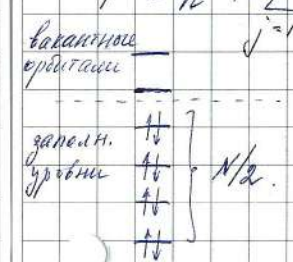 вакантные
орбитали
заполн.
уровни
N/2.